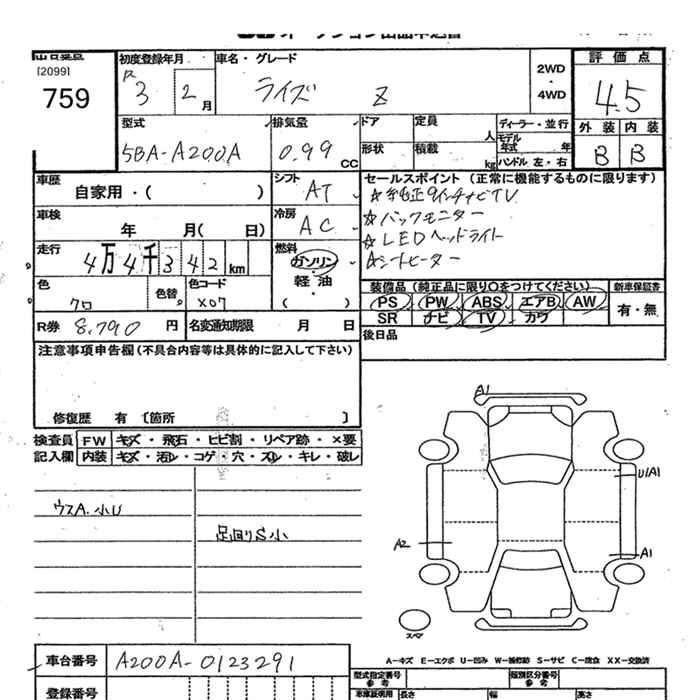 [2099]
759
初度登録年月
R 3 2 月
車名・グレード
ライズ Z
2WD
・
4WD
評価点
4.5
外装 内装
B B
型式
5BA-A200A
排気量
0.99 CC
ドア
定員 人
形状
積載 kg
ディーラー・並行
モデル年式 年
ハンドル 左・右
車歴
自家用・( )
シフト
AT
車検
年 月( 日)
冷房
AC
走行
4万4千342km
燃料
ガソリン
・
軽油
( )
色
クロ
色替
色コード
X07
R券 8,790 円
名変通知期限 月 日
セールスポイント (正常に機能するものに限ります)
☆純正9インチナビTV
☆バックモニター
☆LEDヘッドライト
☆シートヒーター
装備品 (純正品に限り○をつけてください)
新車保証書
PS PW ABS エアB AW
SR ナビ TV カワ
有・無
後日品
注意事項申告欄(不具合内容等は具体的に記入して下さい)
修復歴 有 〔箇所 〕
検査員記入欄
FW キズ・飛石・ヒビ割・リペア跡・×要
内装 キズ・汚レ・コゲ・穴・スレ・キレ・破レ
ウスA.小U
足回りS小
A1
U1A1
A2
A1
スペア
車台番号 A200A-0123291
登録番号
A-キズ E-エクボ U-凹み W-補修跡 S-サビ C-腐食 XX-交換済
型式指定番号
参考
類別区分番号
参考
車庫証明用
長さ
幅
高さ